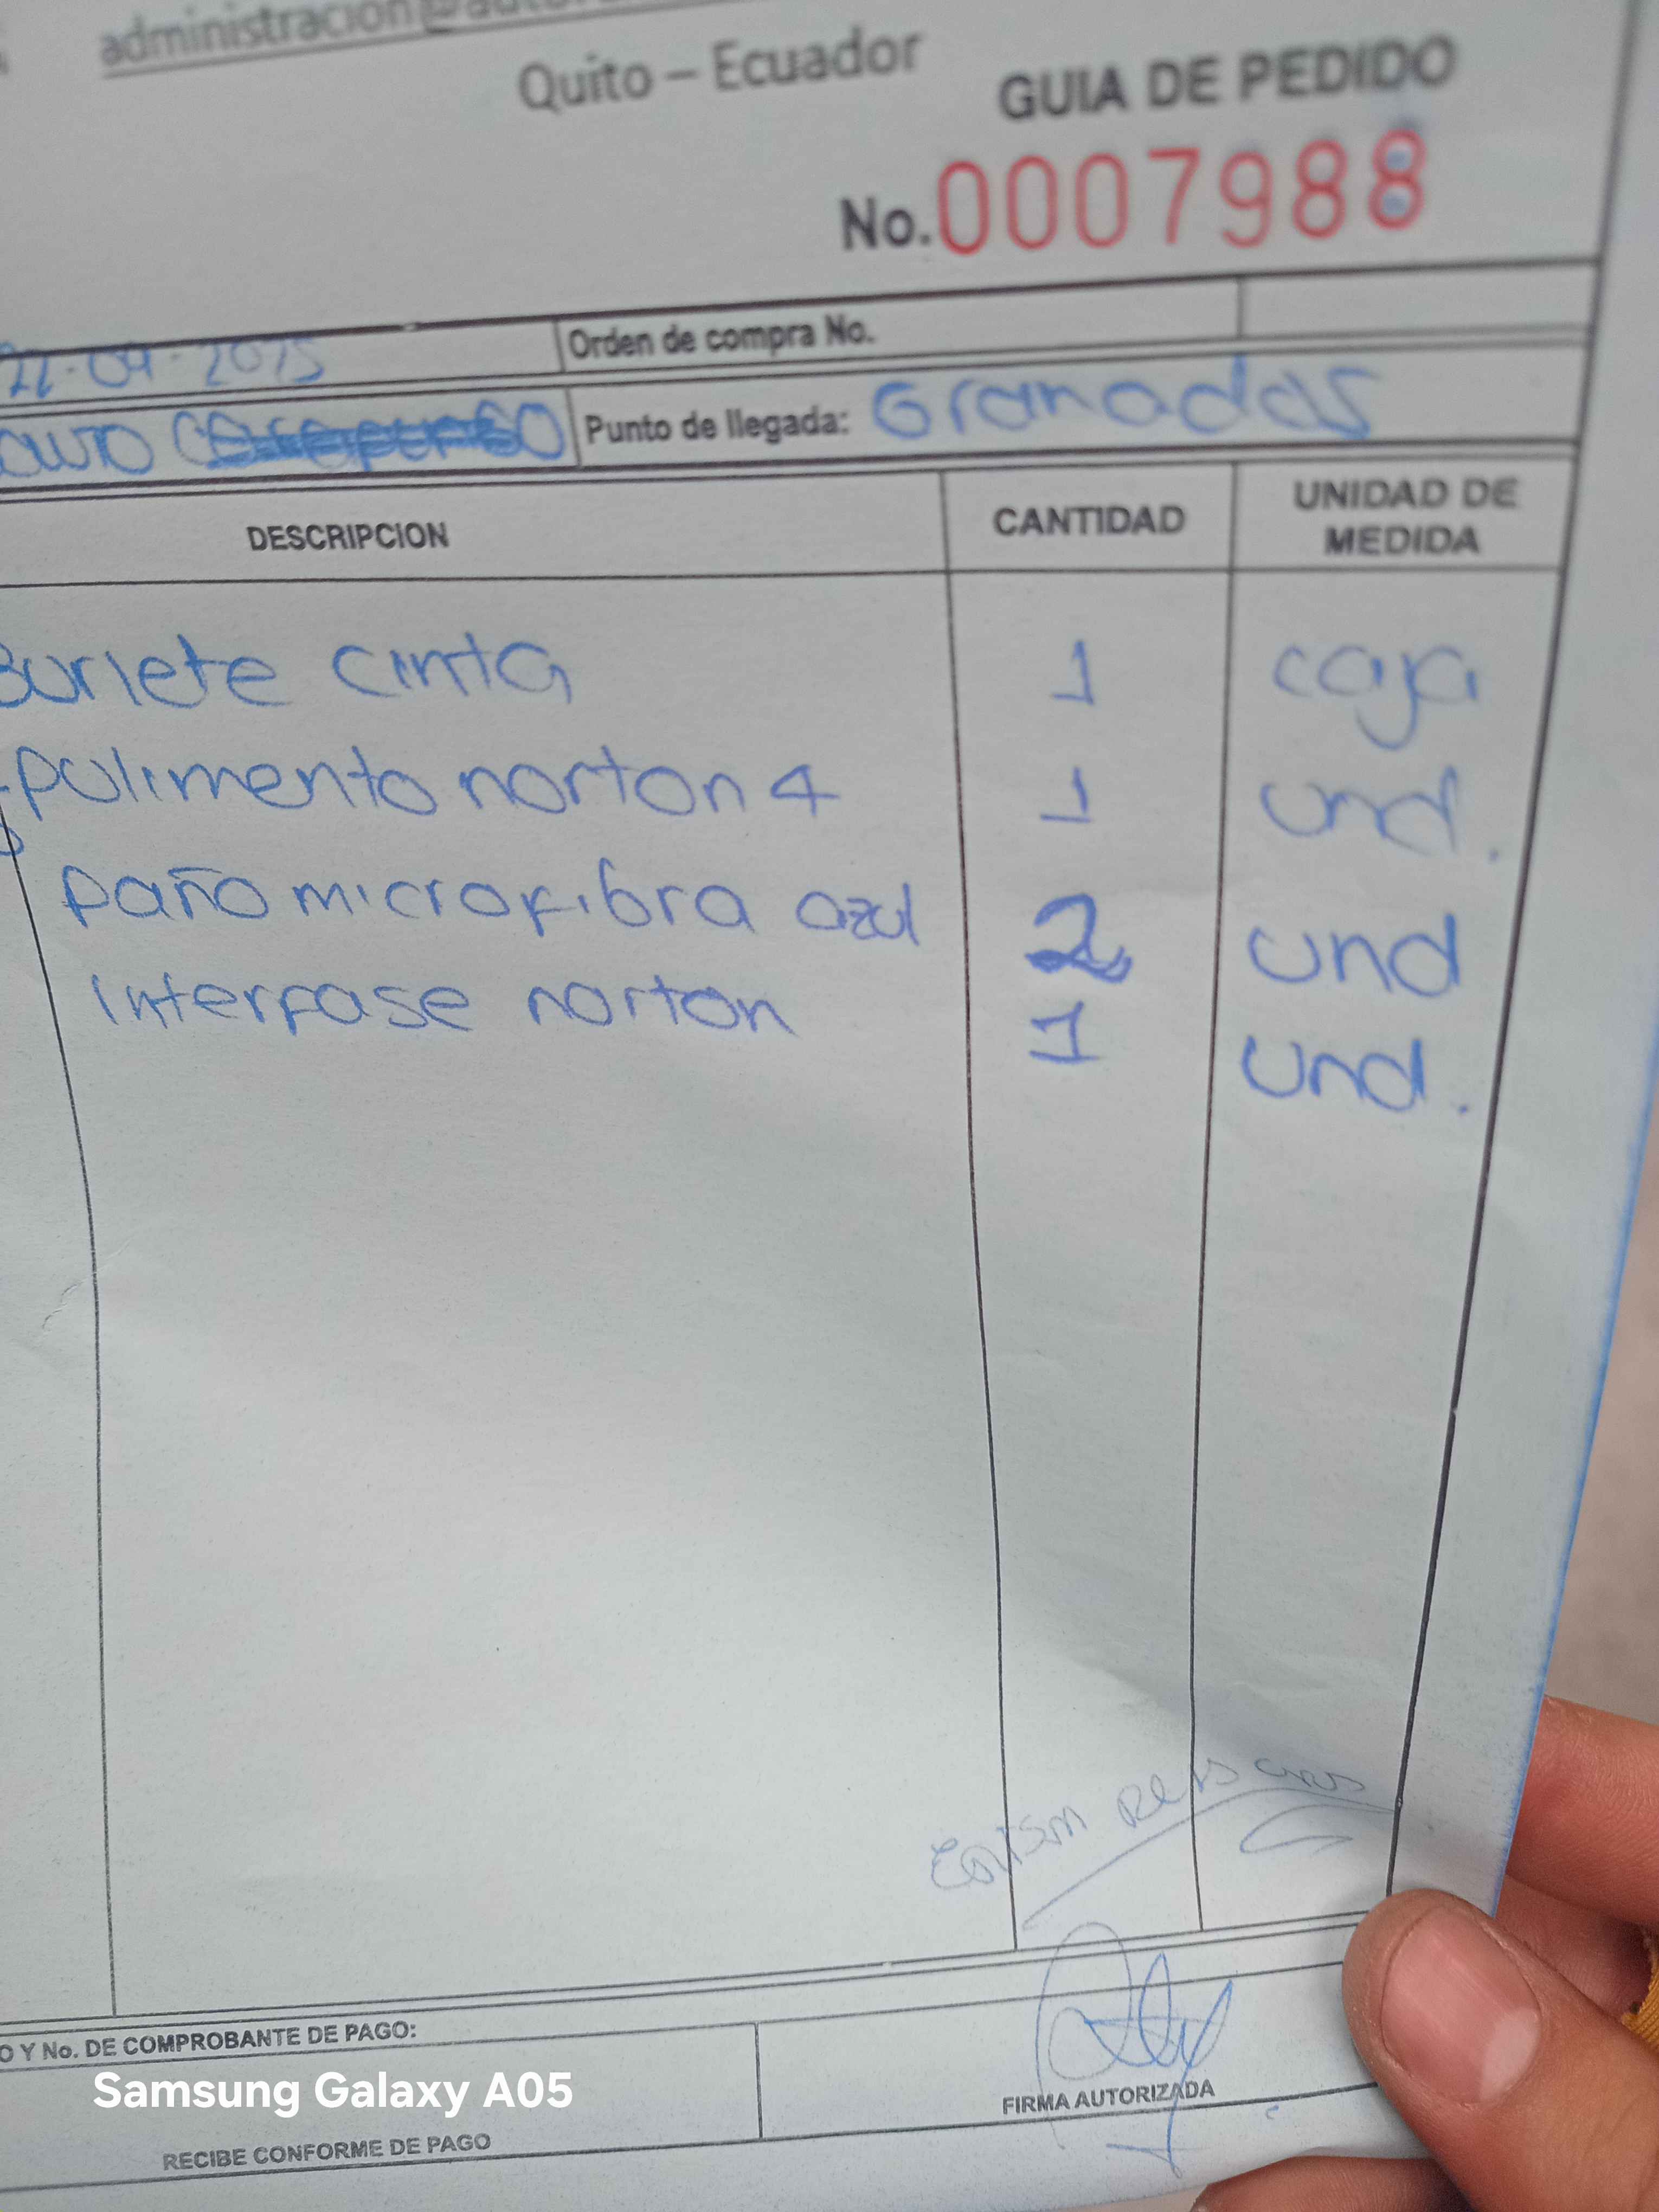 administracion@auto
Quito – Ecuador
GUIA DE PEDIDO
No. 0007988
22-09-2025
Orden de compra No.
Punto de llegada: Granados
DESCRIPCION
CANTIDAD
UNIDAD DE MEDIDA
Burlete cinta 1 caja
pulimento norton 4 1 und.
paño microfibra azul 2 und
Interfase norton 1 und.
O Y No. DE COMPROBANTE DE PAGO:
FIRMA AUTORIZADA
RECIBE CONFORME DE PAGO
Samsung Galaxy A05